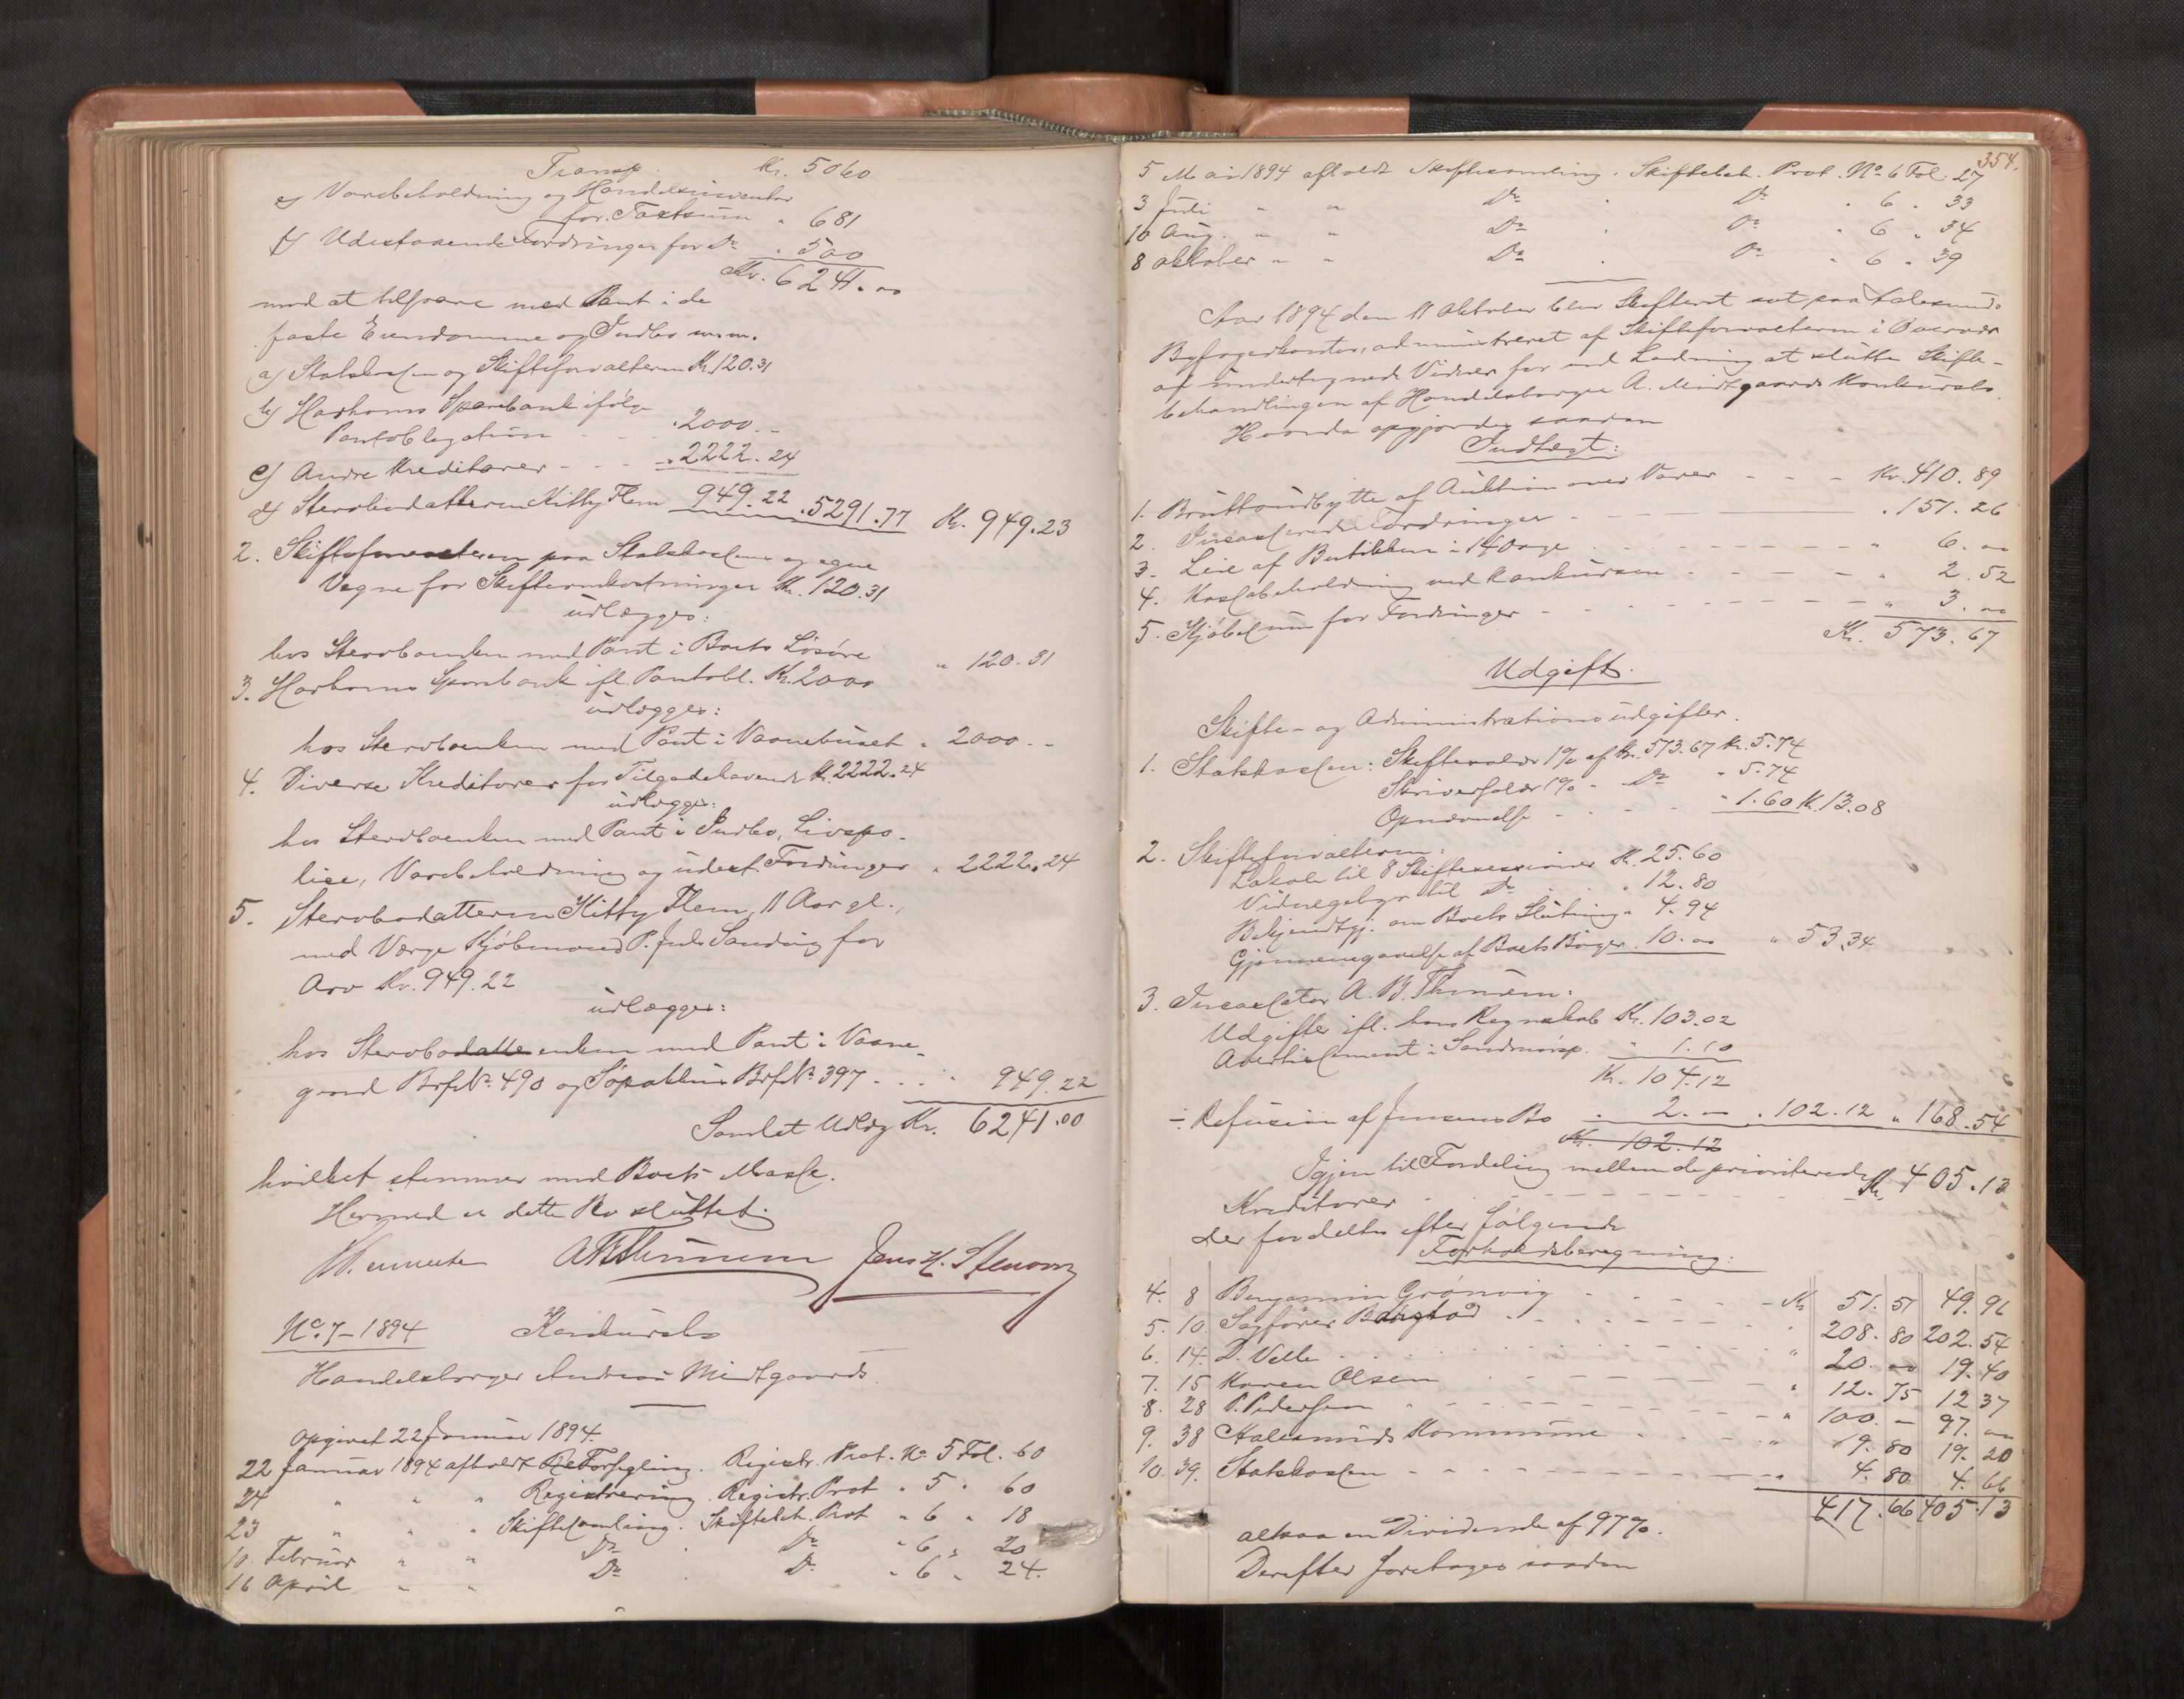 Transp. Kr. 5060
e) Varebeholdning og Handelsinventar
for Taxtsum " 681
f) Udestaaende Fordringer for Do " 500
Kr. 6241.00
mod at tilsvare med Pant i de
faste Eiendomme og Indbo m.m.
a) Statskassen og Skifteforvalteren Kr. 120.31
b) Harhams Sparebank ifølge
Pantobligation - - - " 2000. -
c) Andre Kreditorer - - - " 2222.24
d) Stervbodatteren Kitty Flem 949.22 " 5291.77 Kr. 949.23
2. Skifteforvalteren paa Statskassens og egne
Vegne for Skifteomkostninger Kr. 120.31
udlægges:
hos Stervboenken med Pant i Boets Løsøre " 120.31
3. Harhams Sparebank ifl. Pantobl. Kr. 2000
udlægges:
hos Stervboenken med Pant i Vaanehuset " 2000. -
4. Diverse Kreditorer for Tilgodehavende Kr. 2222.24
udlægges:
hos Stervboenken med Pant i Indbo, Livspo-
lice, Varebeholdning og udest. Fordringer " 2222.24
5. Stervbodatteren Kitty Flem, 11 Aar gl.,
med Værge Kjøbmand P. Juls Sandvig for
Arv Kr. 949.22
udlægges:
hos Stervbodatte enken med Pant i Vaane-
gaard Brf. No. 490 og Søpakhus Brf. No. 397 - . . " 949.22
Samlet Udlæg Kr. 6241.00
hvilket stemmer med Boets Masse.
Hermed er dette Bo sluttet.
AB Thunem Jens H. Stenvaag
No. 7 - 1894 Konkursbo
Handelsborger Andreas Midtgaards
Opgivet 22 Januar 1894.
22 Januar 1894 afholdt Forsegling. Registr. Prot. No 5 Fol. 60
24 " " " Registrering. Registr. Prot " 5 " 60
23 " " " Skiftesamling. Skiftebeh. Prot " 6 " 18
10 Februar " " Do . Do " 6 " 20
16 April " " Do . Do " 6 " 24.
354.
5 Mai 1894 afholdt Skiftesamling. Skiftebeh. Prot. No 6 Fol. 27
3 Juli " " Do . Do " 6 " 33
10 Aug. " " Do . Do " 6 " 34
8 Oktober " " Do . Do " 6 " 39
Aar 1894 den 11 Oktober blev Skifteret sat paa Aalesunds
Byfogedkontor, administreret af Skifteforvalteren i Overvær
af undertegnede Vidner for ved Lodning at slutte Skifte-
behandlingen af Handelsborger A. Midtgaards Konkursbo.
Hvorda opgjordes saadan
Indtægt:
1. Bruttoudbytte af Auktion over Varer - - - Kr. 410.89
2. Incasserede Fordringer - - " 151.26
3. Leie af Butikken i 14 Dage - - - " 6.00
4. Kassabeholdning ved Konkursen - - - " 2.52
5. Kjøbesum for Fordringer - - - " 3.00
Kr. 573.67
Udgift.
Skifte- og Administrationsudgifter.
1. Statskassen: Skiftesalær 1% af Kr. 573.67 Kr. 5.74
Skriversalær 1% " Do " 5.74
Opnævnelse - - - " 1.60 Kr. 13.08
2. Skifteforvalteren:
Lokale til 8 Skiftesessioner Kr. 25.60
Vidnegebyr til Do . . " 12.80
Bekjendtgj. om Boets Slutning " 4.94
Gjennemgaaelse af Boets Bøger 10.00 " 53.34
3. Incassator A. B. Thunem:
Udgifter ifl. hans Regnskab Kr. 103.02
Avertissement i Søndmørsp. " 1.10
Kr. 104.12
÷ Refusion af Jensens Bo " 2.00 " 102.12 " 168.54
Kr. 102.12
Igjen til Fordeling mellem de prioriterede
Kreditorer - - - Kr. 405.13
der fordeltes efter følgende
Forholdsberegning:
4. 8 Benjamin Grønvig - - - Kr 51.51 49.96
5. 10. Sagfører Barstad - - - " 208.80 202.54
6. 14. D. Velle - - - " 20.00 19.40
7. 15 Karen Olsen - - - " 12.75 12 37
8. 28 P. Pedersen - - - " 100. - 97. 00
9. 38 Aalesunds Kommune - - - " 19.80 19.20
10. 39. Statskassen - - - " 4.80 4.66
417.66 405.13
altsaa en Dividende af 97%.
Derefter foretages saadan